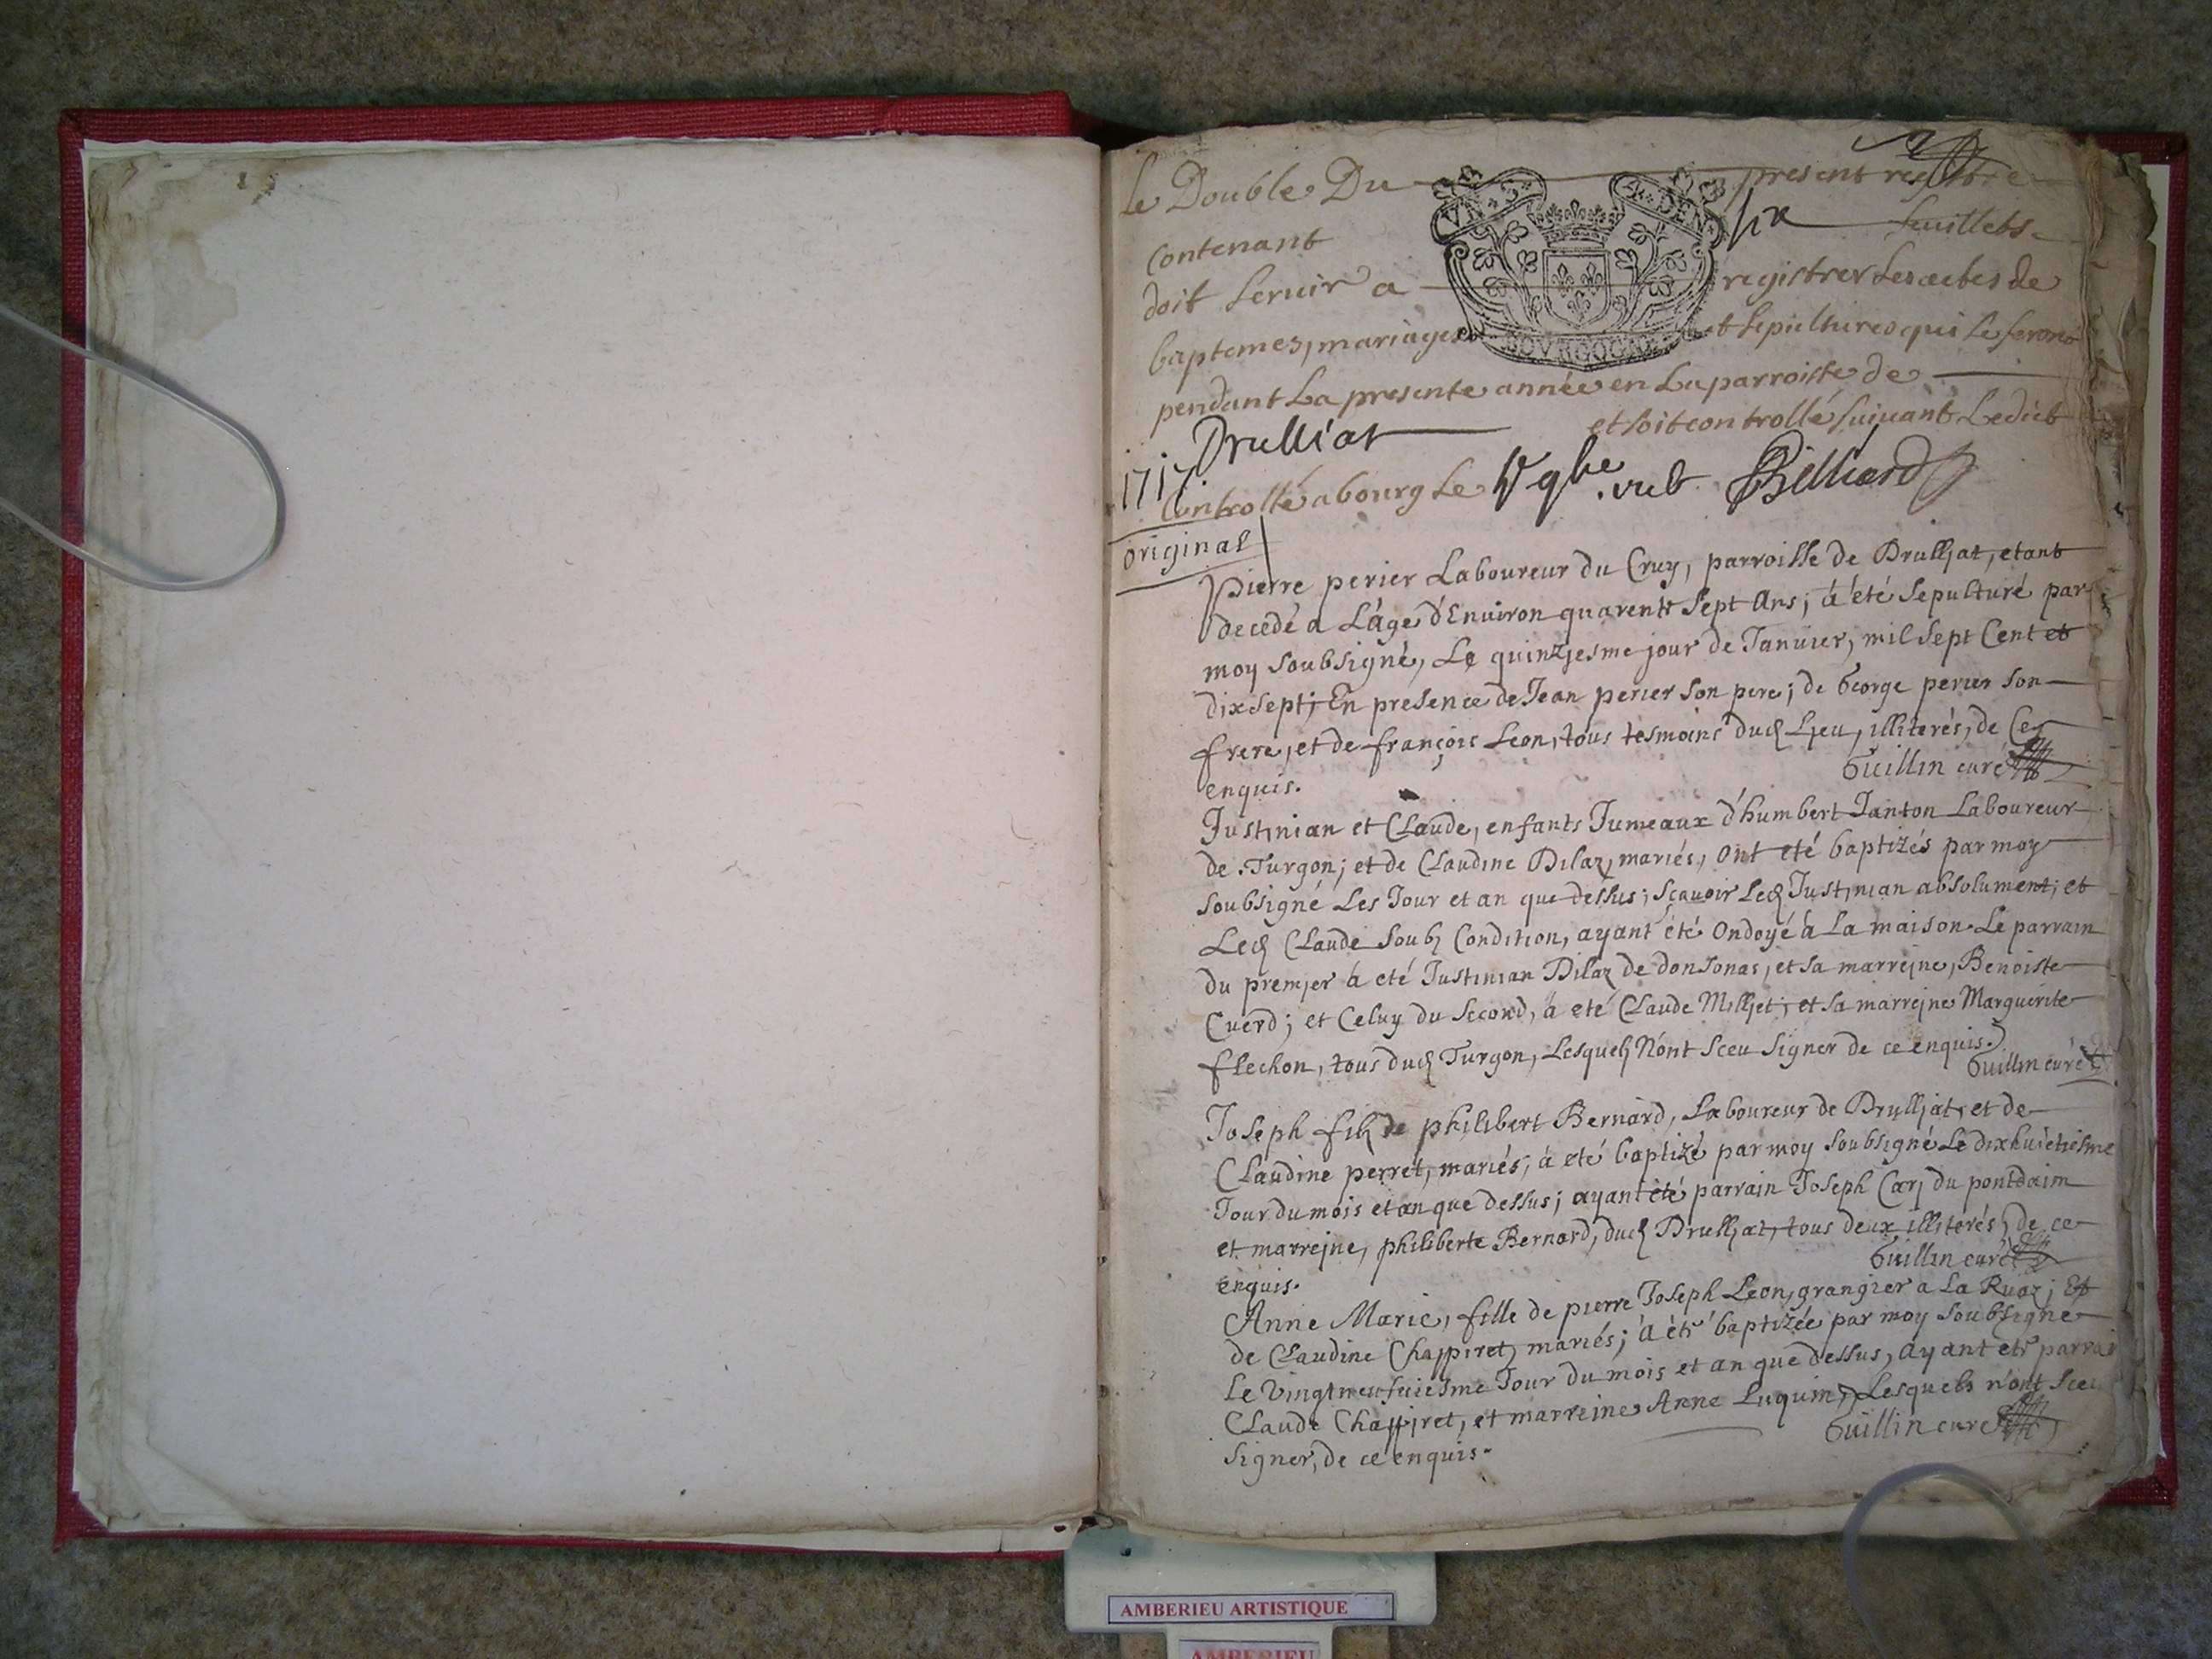 Le Double Du present registre
contenant six feuillets
doit servir a registrer les actes de
baptemes, mariages et sepultures qui se feront
pendant La presente année en La parroisse de
Drulliat et soit controllé suivant Ledict
1717
Controllé a bourg Le Billiard
VN · S · 4 · DEN
BOVRGOGNE
original
Pierre perier Laboureur du Cruy, parroisse de Drulljat, etant
decedé a L'âge d'Environ quarente sept Ans; à été sepulturé par
moy soubsigné, Le quinzjesme jour de Janvier, mil sept Cent et
dix sept; En presence de Jean perier son pere; de George perier son
frere, et de françois Leon, tous tesmoins dud Ljeu, illiterés, de Ce
enquis. Guillin curé
Justinian et Claude, enfants Jumeaux d'humbert Janton Laboureur
de Turgon; et de Claudine Dilaz, mariés, ont eté baptizés par moy
soubsigné Les Jour et an que dessus; scavoir Led Justinian absolument; et
Led Claude soubz Condition, ayant été Ondoyé à La maison. Le parrain
du premjer à eté Justinian Dilaz de donsonas, et sa marrejne, Benoiste
Cuerd; et Celuy du second, à eté Claude Milljet; et sa marrejne Marguerite
flechon, tous dud Turgon, Lesquelz N'ont sceu signer de ce enquis.
Guillin curé
Joseph filz de philibert Bernard, Laboureur de Drulljat, et de
Claudine perret, mariés, à eté baptizé par moy soubsigné Le dixhuictiesme
Jour du mois et an que dessus; ayant été parrain Joseph Carj du pontdain
et marrejne, philiberte Bernard, dud Drulljat, tous deux illiterés, de ce
enquis. Guillin curé
Anne Marie, fille de pierre Joseph Leon, grangier a La Ruaz; Et
de Claudine Chappiret, mariés; à eté baptizée par moy soubsigné
Le vingtneufviesme Jour du mois et an que dessus, ayant eté parrai
Claude Chappiret, et marreine Anne Luquin, Lesquels n'ont sceu
signer, de ce enquis. Guillin curé
AMBERIEU ARTISTIQUE
AMBERIEU